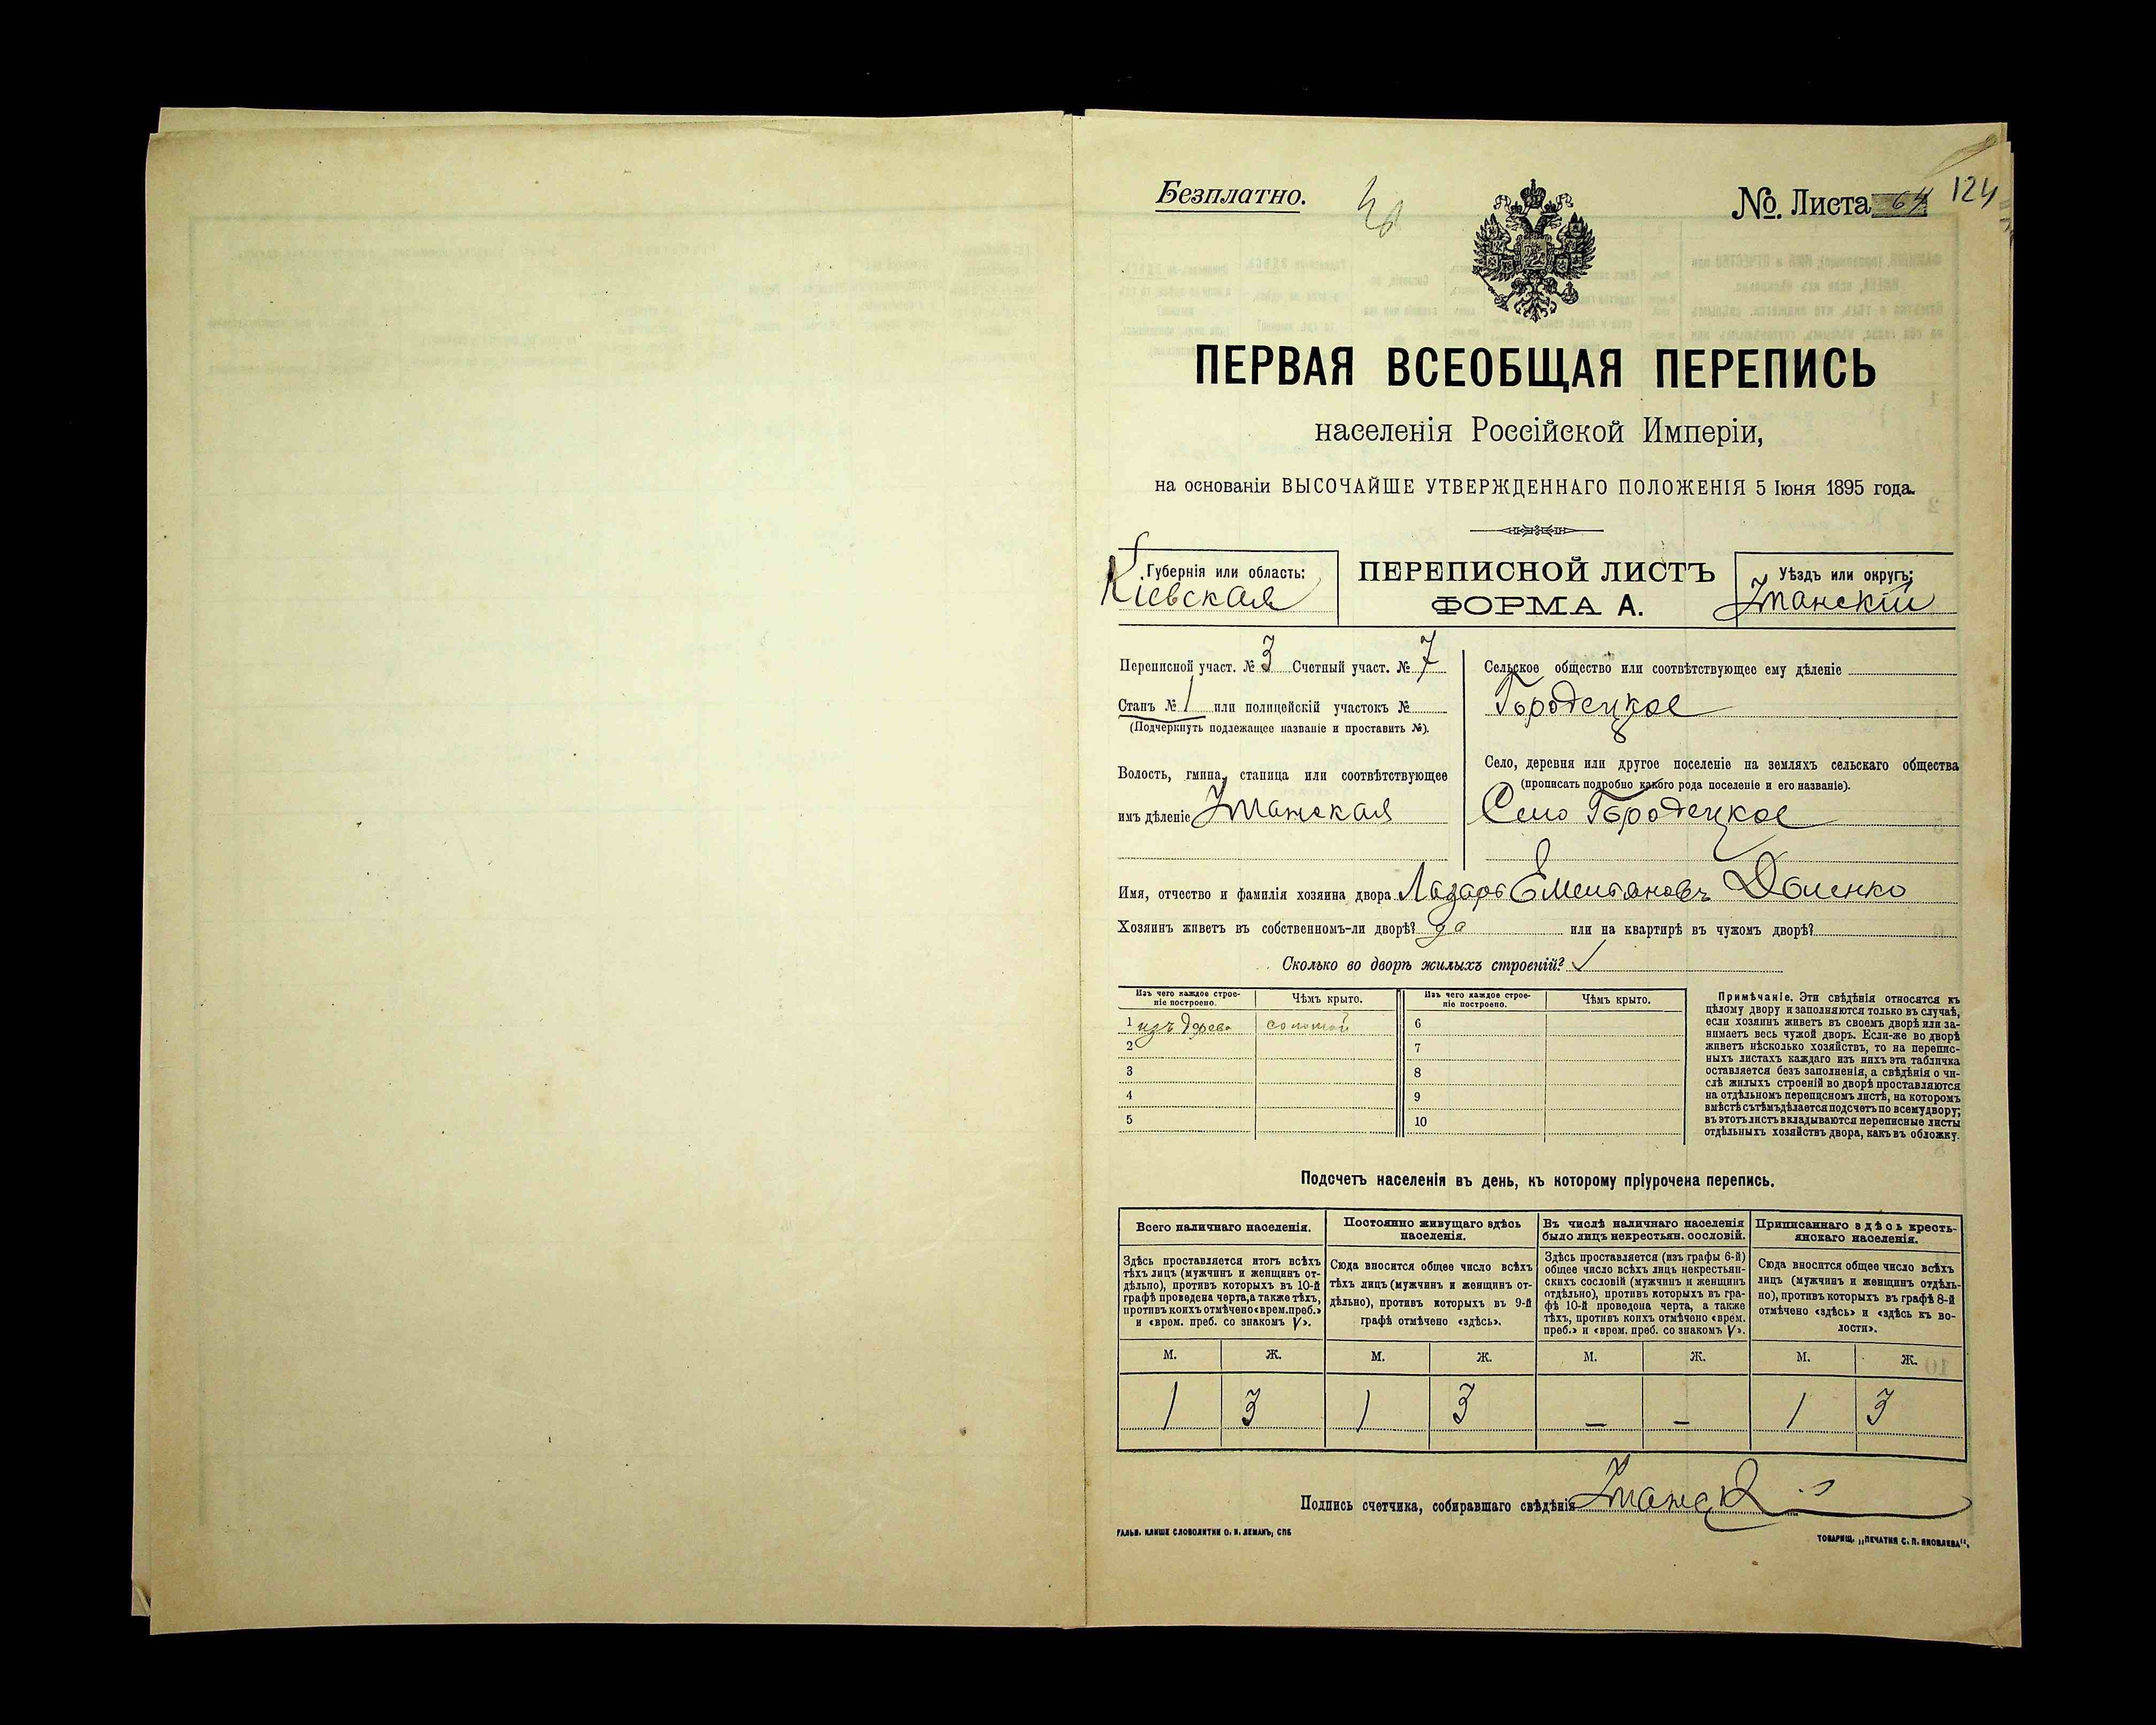 Безплатно.
No. Листа 64 124
ПЕРВАЯ ВСЕОБЩАЯ ПЕРЕПИСЬ
населенія Россійской Имперіи,
на основаніи ВЫСОЧАЙШЕ УТВЕРЖДЕННАГО ПОЛОЖЕНІЯ 5 Іюня 1895 года.
Губернія или область:
Кіевская
ПЕРЕПИСНОЙ ЛИСТЪ
ФОРМА А.
Уѣздъ или округъ:
Уманскій
Переписной участ. № 3 Счетный участ. № 7
Станъ № 1 или полицейскій участокъ №
(Подчеркнуть подлежащее названіе и проставить №).
Волость, гмина, станица или соотвѣтствующее
имъ дѣленіе Уманская
Сельское общество или соотвѣтствующее ему дѣленіе
Городецкое
Село, деревня или другое поселеніе на земляхъ сельскаго общества
(прописать подробно какого рода поселеніе и его названіе).
Село Городецкое
Имя, отчество и фамилія хозяина двора Лазарь Емельановъ
Хозяинъ живетъ въ собственномъ-ли дворѣ? да или на квартирѣ въ чужомъ дворѣ?
Сколько во дворѣ жилыхъ строеній?
Изъ чего каждое строе-
ніе построено.
Чѣмъ крыто.
Изъ чего каждое строе-
ніе построено.
Чѣмъ крыто.
1 изъ дерева соломой 6
2 7
3 8
4 9
5 10
Примѣчаніе. Эти свѣдѣнія относятся къ
цѣлому двору и заполняются только въ случаѣ,
если хозяинъ живетъ въ своемъ дворѣ или за-
нимаетъ весь чужой дворъ. Если-же во дворѣ
живетъ нѣсколько хозяйствъ, то на перепис-
ныхъ листахъ каждаго изъ нихъ эта табличка
оставляется безъ заполненія, а свѣдѣнія о чи-
слѣ жилыхъ строеній во дворѣ проставляются
на отдѣльномъ переписномъ листѣ, на которомъ
вмѣстѣ съ тѣмъ дѣлается подсчетъ по всему двору;
въ этотъ листъ вкладываются переписные листы
отдѣльныхъ хозяйствъ двора, какъ въ обложку.
Подсчетъ населенія въ день, къ которому пріурочена перепись.
Всего наличнаго населенія.
Здѣсь проставляется итогъ всѣхъ
тѣхъ лицъ (мужчинъ и женщинъ от-
дѣльно), противъ которыхъ въ 10-й
графѣ проведена черта, а также тѣхъ,
противъ коихъ отмѣчено «врем. преб.»
и «врем. преб. со знакомъ V».
Постоянно живущаго здѣсь
населенія.
Сюда вносится общее число всѣхъ
тѣхъ лицъ (мужчинъ и женщинъ от-
дѣльно), противъ которыхъ въ 9-й
графѣ отмѣчено «здѣсь».
Въ числѣ наличнаго населенія
было лицъ некрестьян. сословій.
Здѣсь проставляется (изъ графы 6-й)
общее число всѣхъ лицъ некрестьян-
скихъ сословій (мужчинъ и женщинъ
отдѣльно), противъ которыхъ въ гра-
фѣ 10-й проведена черта, а также
тѣхъ, противъ коихъ отмѣчено «врем.
преб.» и «врем. преб. со знакомъ V».
Приписаннаго здѣсь кресть-
янскаго населенія.
Сюда вносится общее число всѣхъ
лицъ (мужчинъ и женщинъ отдѣль-
но), противъ которыхъ въ графѣ 8-й
отмѣчено «здѣсь» и «здѣсь къ во-
лости».
М. Ж. М. Ж. М. Ж. М. Ж.
1 3 1 3 – – 1 3
Подпись счетчика, собиравшаго свѣдѣнія
ГАЛЬВ. КЛИШЕ СЛОВОЛИТНИ О. И. ЛЕМАНЪ, СПБ
ТОВАРИЩ. „ПЕЧАТНЯ С. П. ЯКОВЛЕВА".